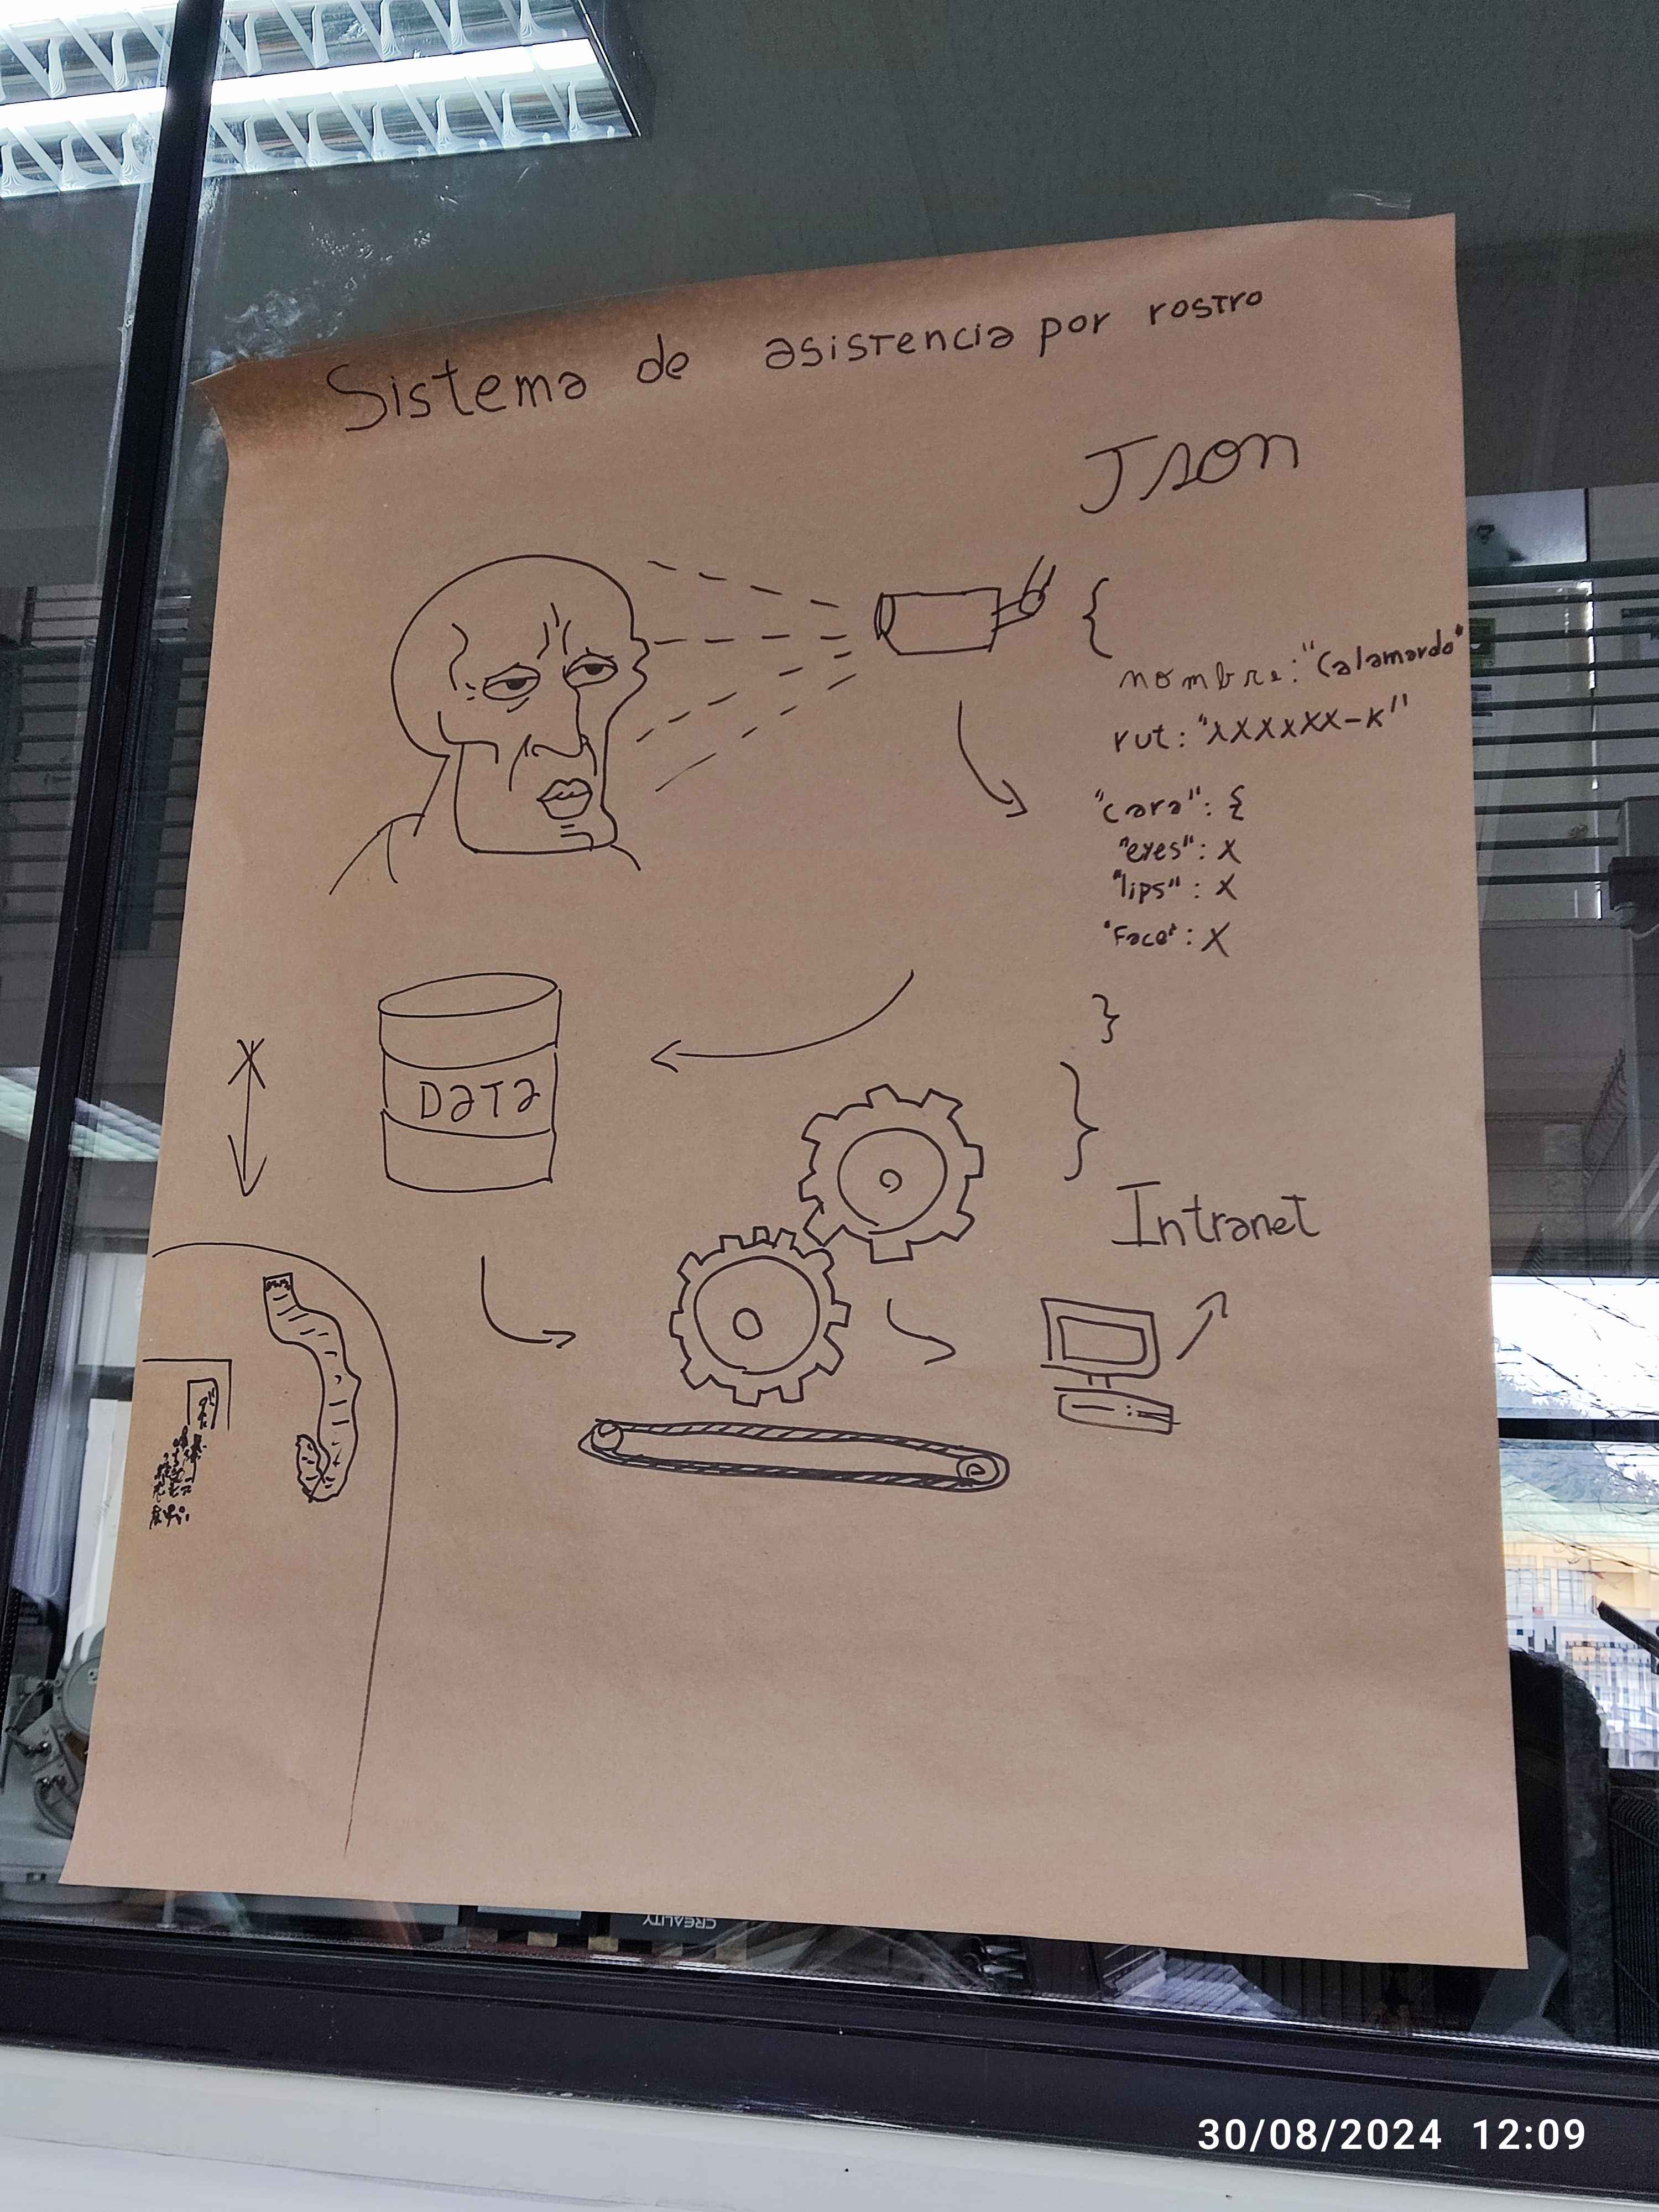 Sistema de asistencia por rostro
Json
{
nombre: "Calamardo"
rut: "XXXXXXX-K"
"cara": {
"eyes": X
"lips": X
"Face": X
}
}
Data
Intranet
CREALITY
30/08/2024 12:09